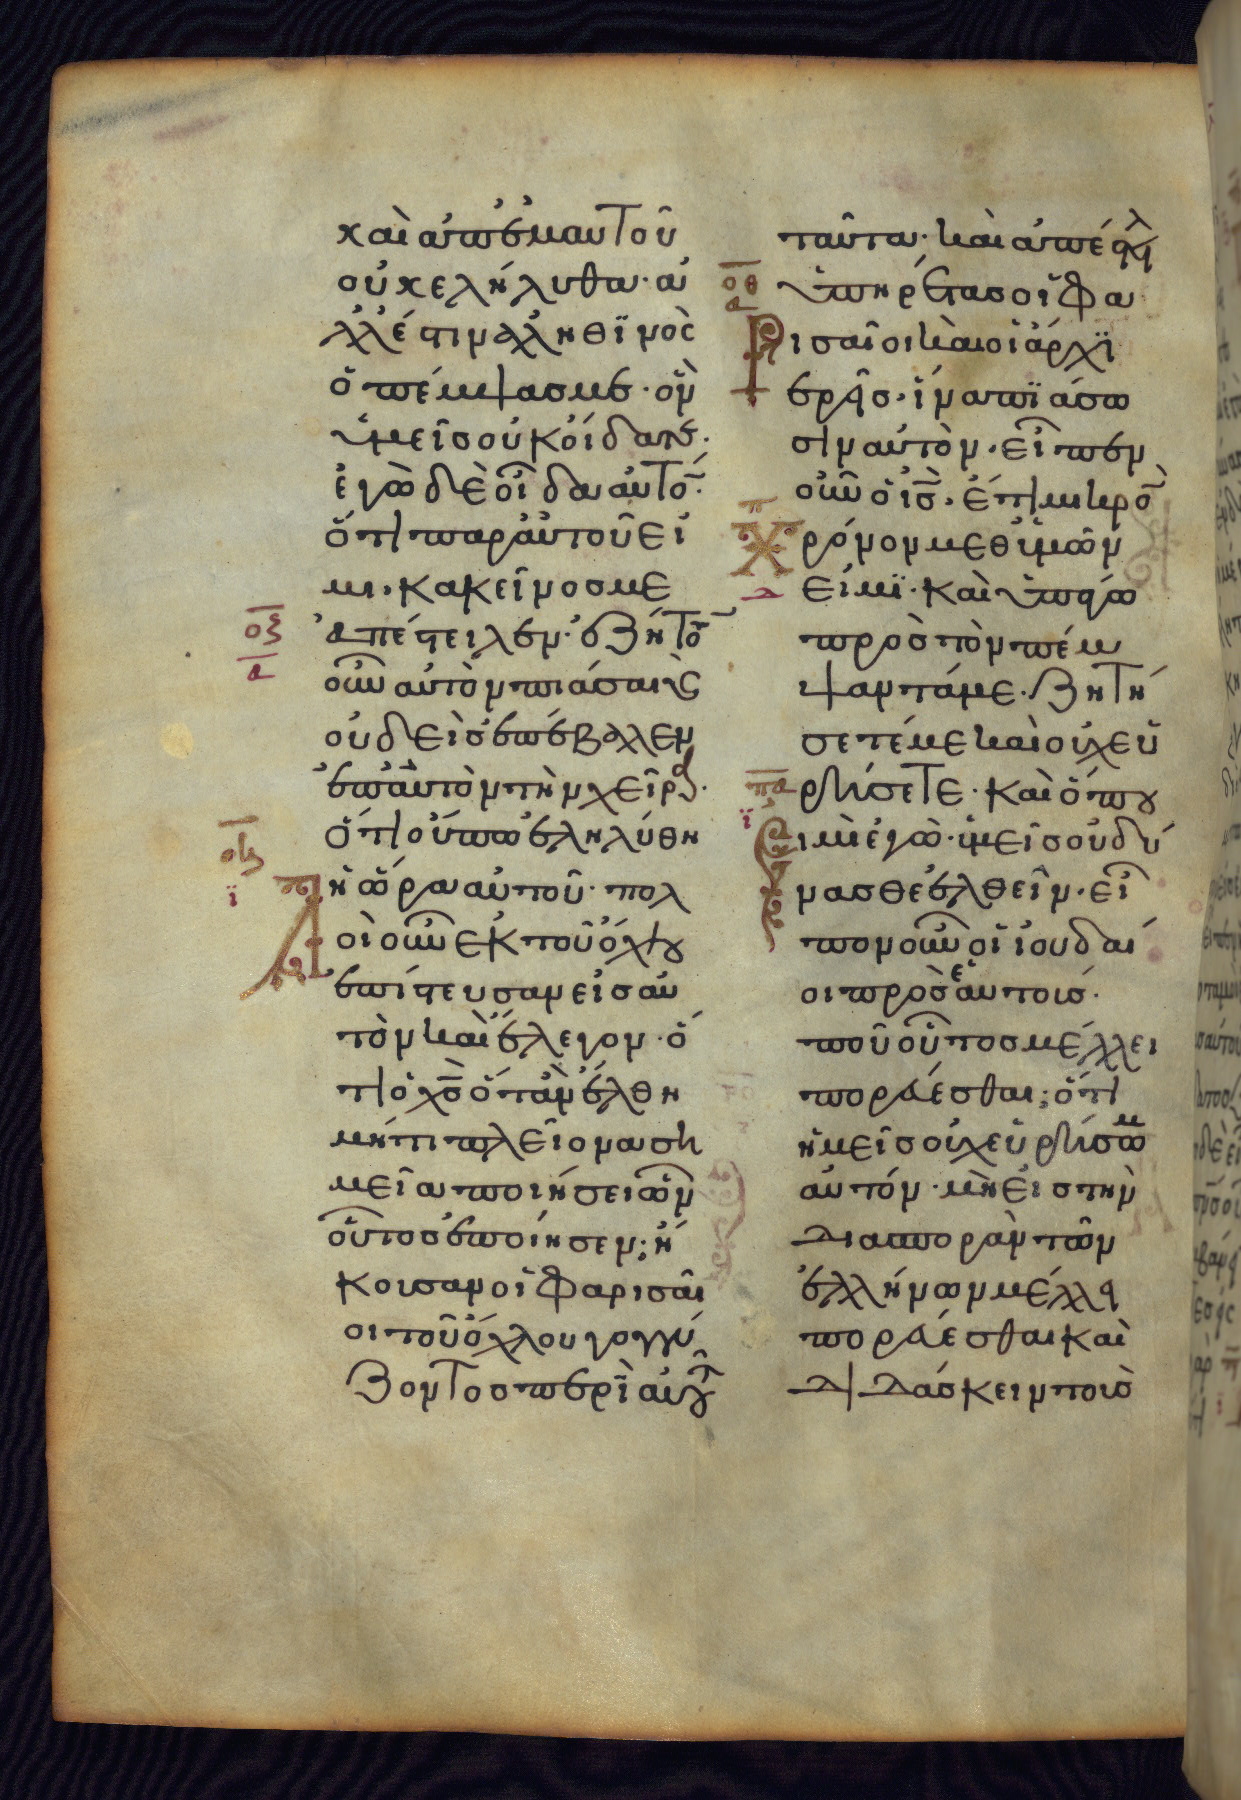 καὶ ἀπ' ἐμαυτοῦ
οὐκ ἐλήλυθα· ἀ
λλ' ἔστιν ἀληθϊνὸς
ὁ πέμψας με· ὃν
ὑμεῖς οὐκ οἴδατε·
ἐγὼ δὲ οἶδα αὐτὸ̅·
ὅτι παρ' αὐτοῦ εἰ
μι· κἀκεῖνος με
οξ
α
ἀπέστειλεν· ἐζήτο̅
οὖν αὐτὸν πιάσαι ς
οὐδεὶς ἐπέβαλεν
ἐπ' αὐτὸν τὴν χεῖρα·
ὅτι οὔπω ἐληλύθη
ϊ
ἡ ὥρα αὐτοῦ· πολ
λοὶ οὖν ἐκ τοῦ ὄχλου
ἐπίστευσαν εἰς αὐ
τὸν καὶ ἔλεγον· ὅ
τι ὁ χς ὅταν ἔλθη
μήτι πλείονα ση
μεῖα ποιήσει ὧν
οὗτος ἐποίησεν; ἤ
κουσαν οἱ φαρισαῖ
οι τοῦ ὄχλου γογγύ
ζοντος περὶ αὐτοῦ
ταῦτα· καὶ ἀπέστειλ
οθ
α
ὑπηρέτας οἱ φα
ρισαῖοι καὶ οἱ ἀρχϊ
ερεῖς· ἵνα πϊάσω
σιν αὐτὸν· εἶπεν
οὖν ὁ ις· ἔτι μικρὸ̅
π
χρόνον μεθ' ὑμῶν
εἰμϊ· καὶ ὑπάγω
πρὸς τὸν πέμ
ψαντά με· ζητή
σετέ με καὶ οὐχ εὑ
πα
ρήσετε· καὶ ὅπου
ϊ
εἰμὶ ἐγὼ· ὑμεῖς οὐ δύ
νασθε ἐλθεῖν· εἶ
πον οὖν οἱ ἰουδαί
οι πρὸς ἑαυτοῖς·
ποῦ οὗτος μέλλει
πορεύεσθαι; ὅτι
ἡμεῖς οὐχ εὑρήσομεν
αὐτόν· μὴ εἰς τὴν
διασπορὰν τῶν
ἑλλήνων μέλλει
πορεύεσθαι καὶ
διδάσκειν τοὺς